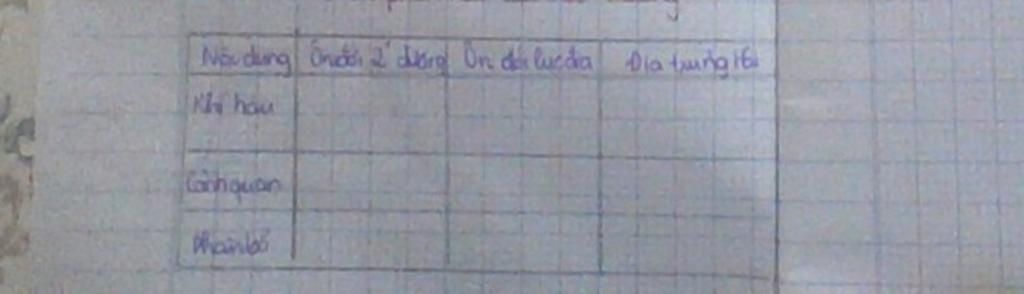 Nội dung Ôn đới 2' dương Ôn đới lục địa Địa trung Hải
Khí hậu
Cảnh quan
Phân bố